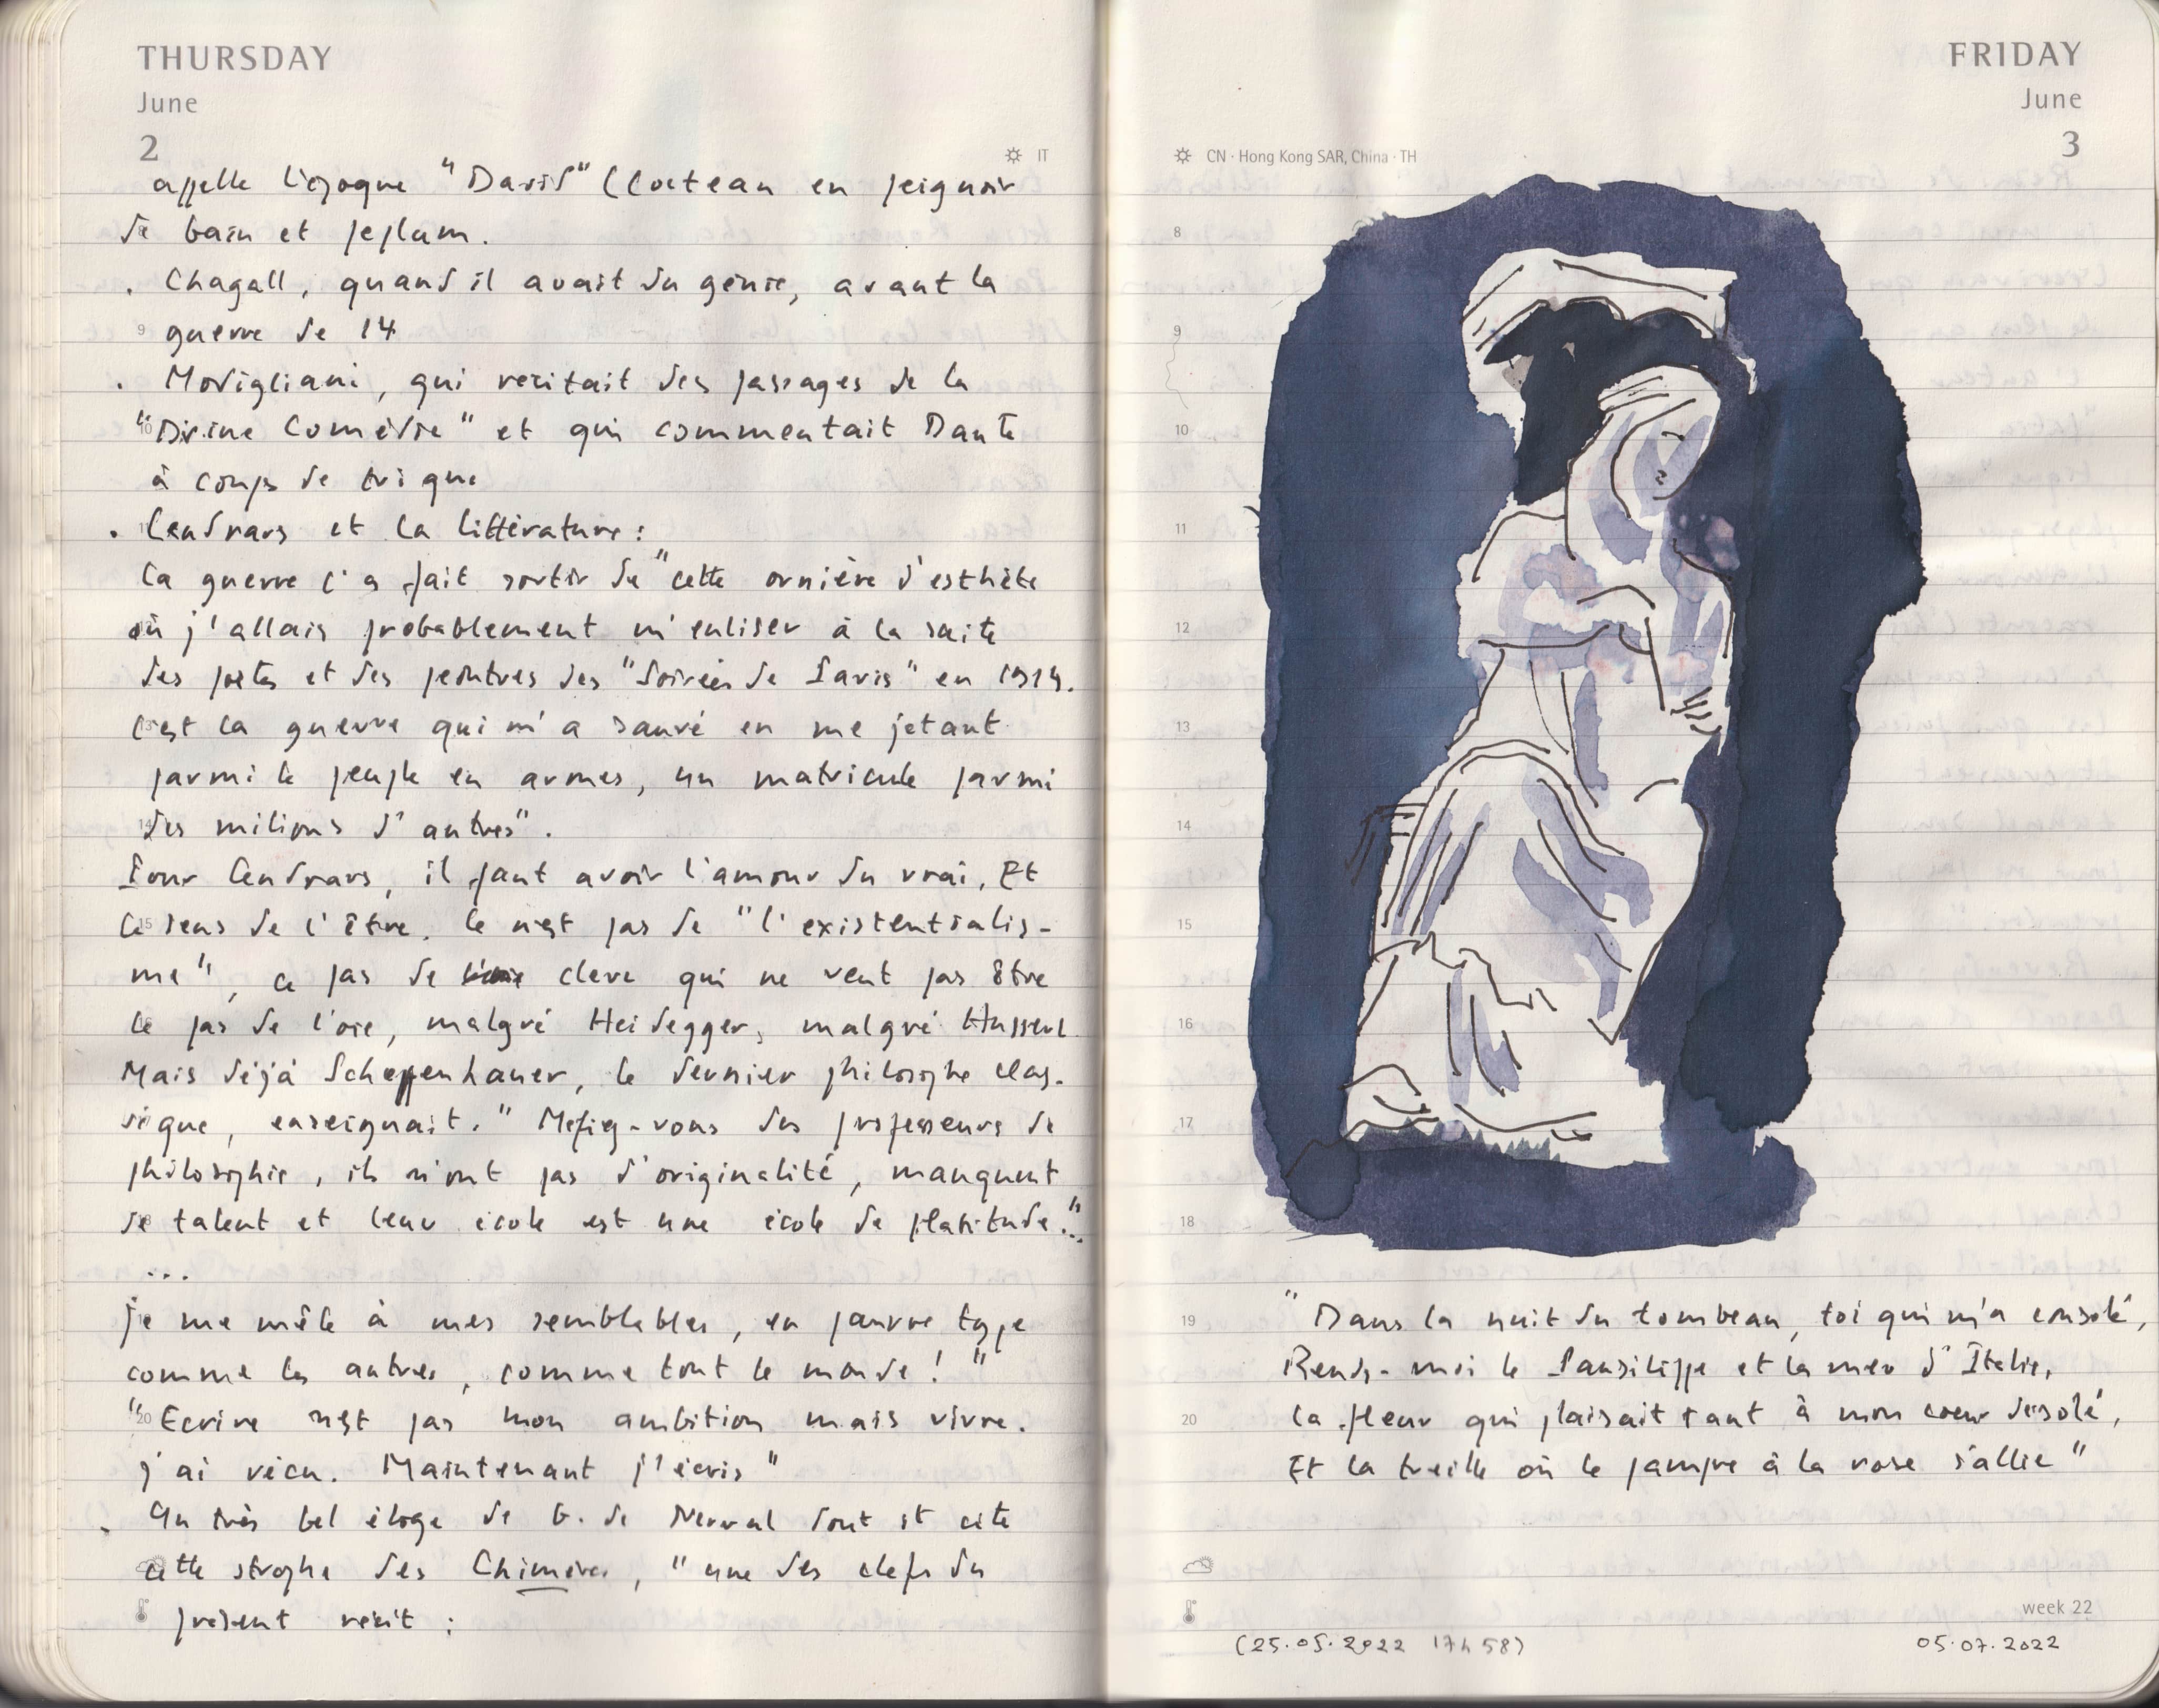 THURSDAY
June
2
IT
appelle l'époque "David" (Cocteau en peignoir
de bain et peplum.
. Chagall, quand il avait du génie, avant la
9 guerre de 14
. Modigliani, qui récitait des passages de la
"Divine Comédie" et qui commentait Dante
à coups de trique
. Cendrars et la littérature :
la guerre l'a fait sortir de "cette ornière d'esthète
où j'allais probablement m'enliser à la suite
des poètes et des peintres des "Soirées de Paris" en 1914.
C'est la guerre qui m'a sauvé en me jetant
parmi le peuple en armes, un matricule parmi
des milions d'autres".
Pour Cendrars, il faut avoir l'amour du vrai. Et
le sens de l'être. Ce n'est pas de "l'existentialis-
me", ce pas de clerc qui ne veut pas être
le pas de l'oie, malgré Heidegger, malgré Husserl.
Mais déjà Schoppenhauer, le dernier philosophe clas-
sique, enseignait. "Méfiez-vous des professeurs de
philosophie, ils n'ont pas d'originalité, manquent
de talent et leur école est une école de platitude."..
...
je me mêle à mes semblables, en pauvre type
comme les autres, comme tout le monde ! "
"Ecrire n'est pas mon ambition mais vivre.
j'ai vécu. Maintenant j'écris"
. Un très bel éloge de G. de Nerval dont il cite
cette strophe des Chimères, "une des clefs du
présent récit :
FRIDAY
June
3
CN · Hong Kong SAR, China · TH
8
9
10
11
12
13
14
15
16
17
18
19 "Dans la nuit du tombeau, toi qui m'a consolé,
Rends-moi le Pausilippe et la mer d'Italie,
20 la fleur qui plaisait tant à mon cœur désolé,
Et la treille où le pampre à la rose s'allie"
week 22
(25.05.2022 17h58)
05.07.2022